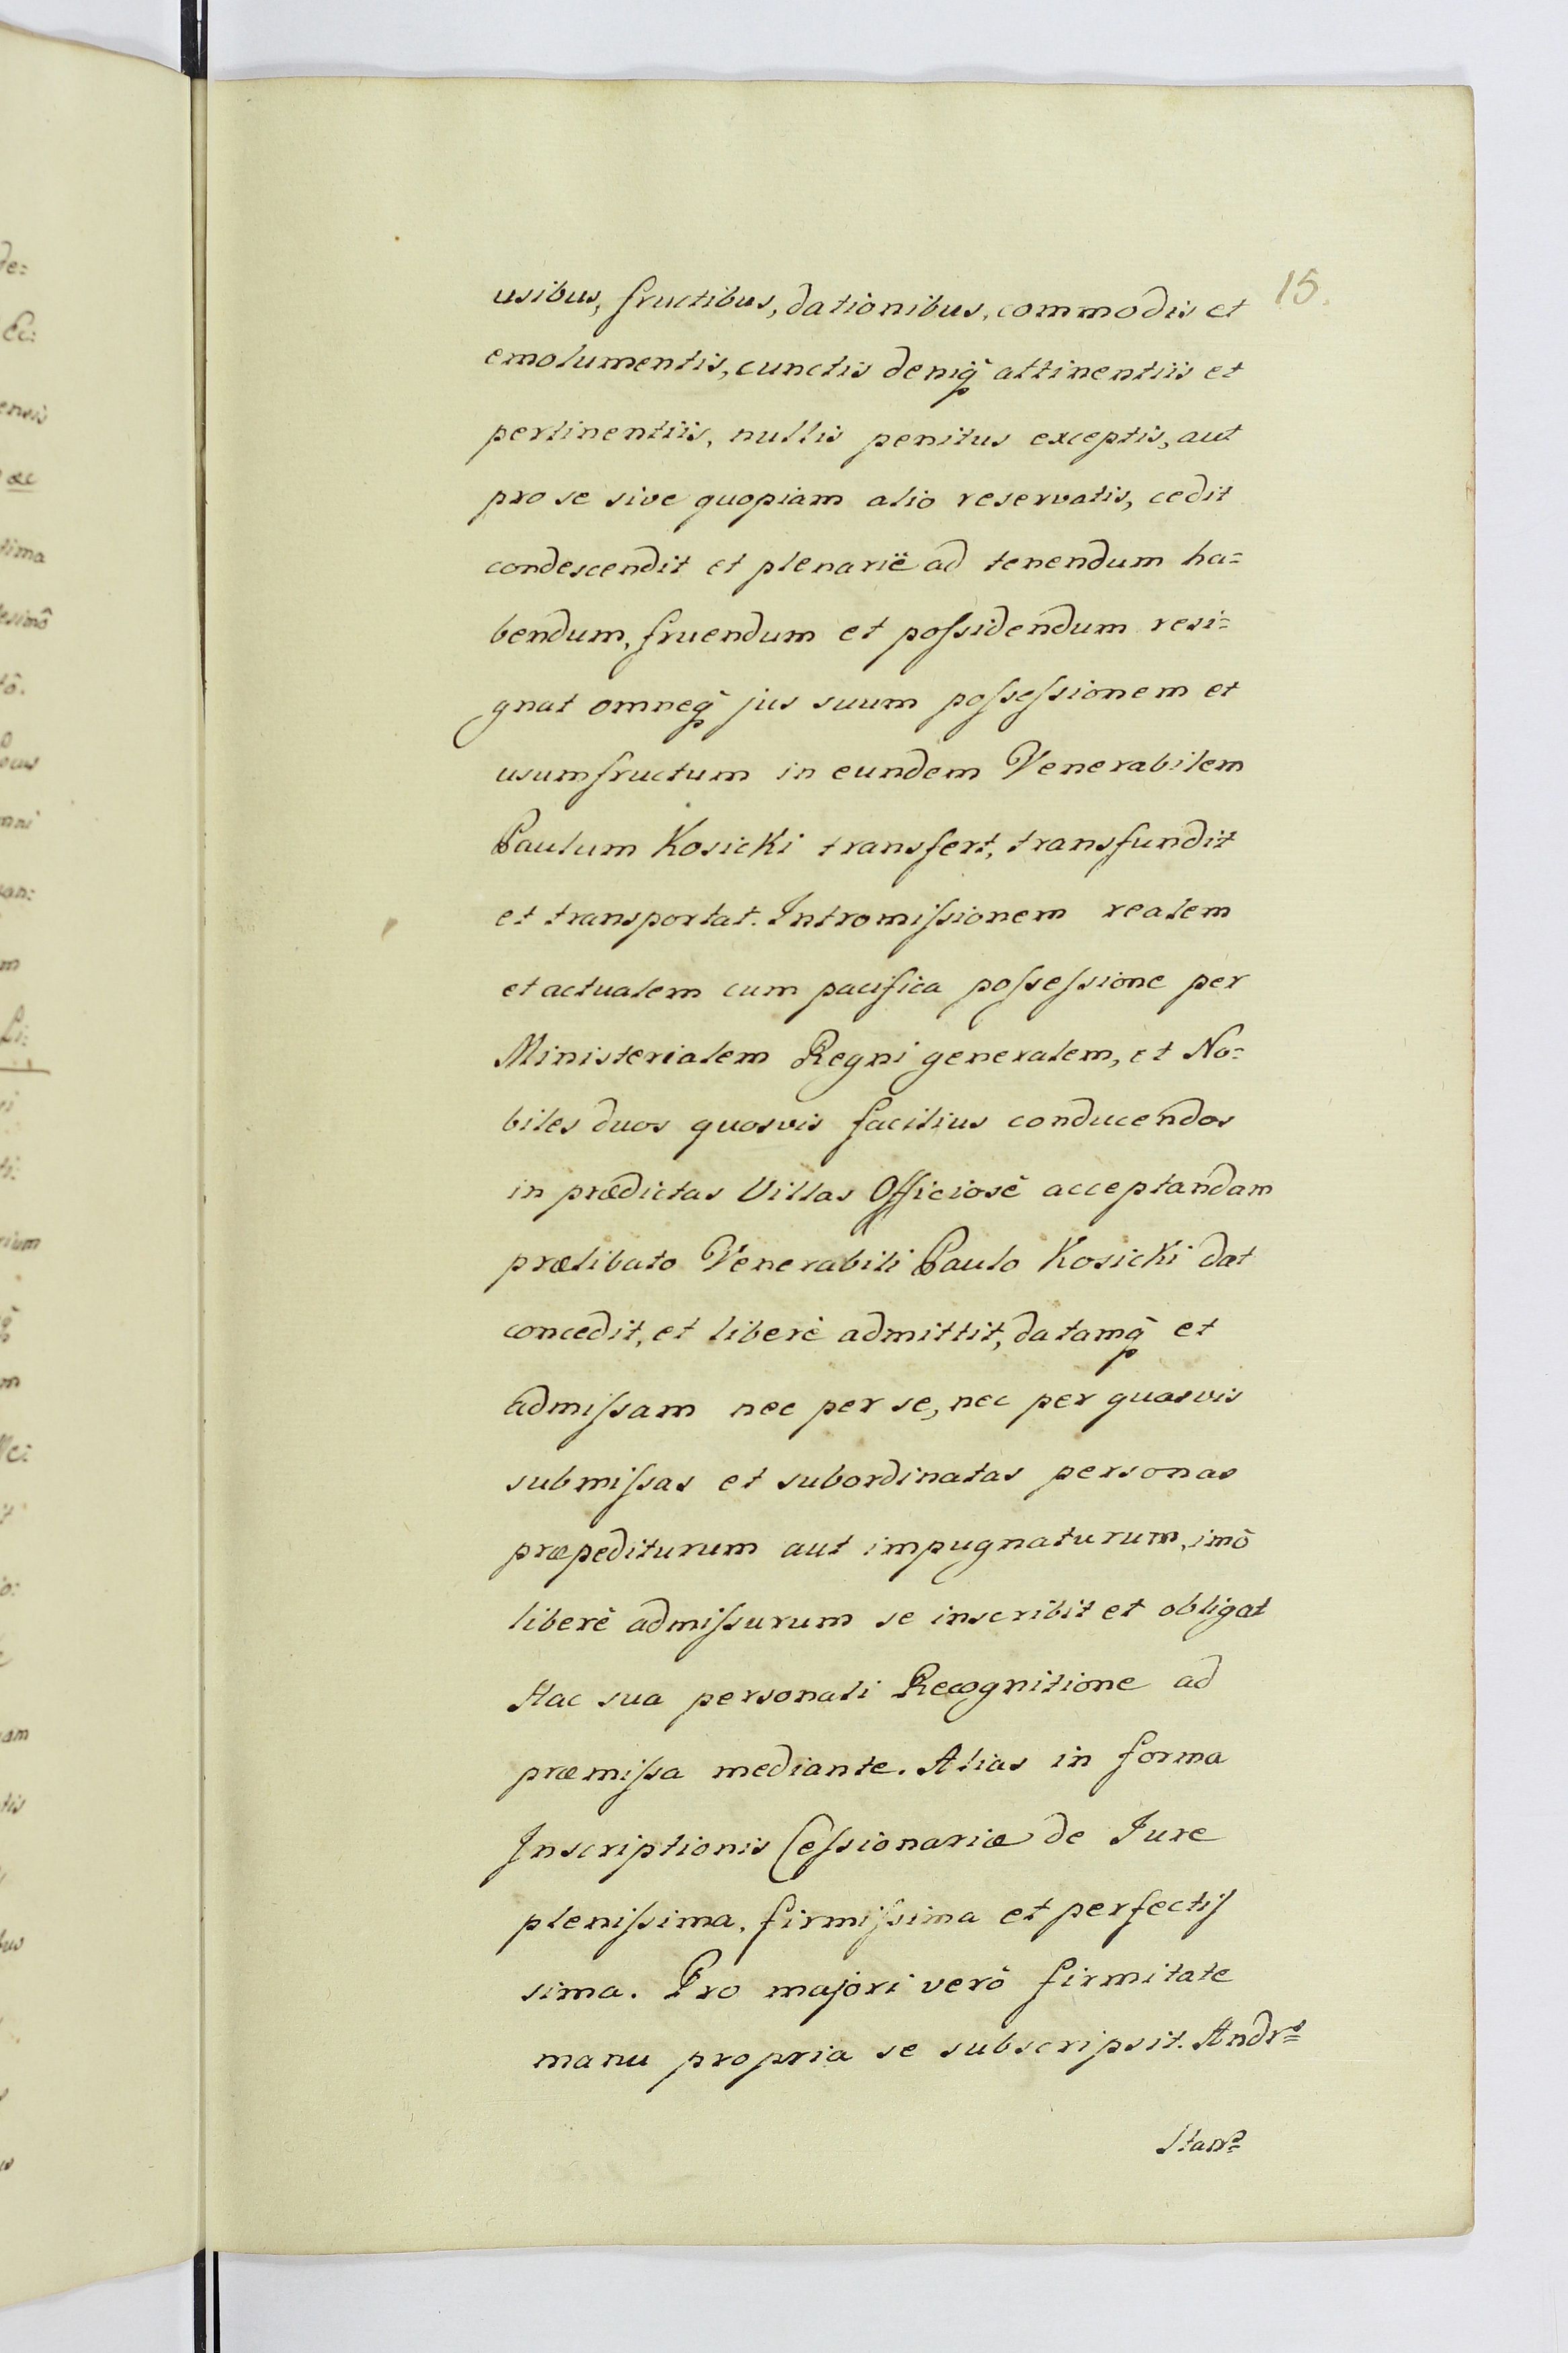 15.
usibus, fructibus, dationibus, commodis et
emolumentis, cunctis deniq̃ attinentiis et
pertinentiis, nullis penitus exceptis, aut
pro se sive quopiam alio reservatis, cedit
condescendit et plenariè ad tenendum ha=
bendum, fruendum et poſsidendum resi=
gnat omneq̃ jus suum poſseſsionem et
usumfructum in eundem Venerabilem
Paulum Kosicki transfert, transfundit
et transportat. Intromiſsionem realem
et actualem cum pacifica poſseſsione per
Ministerialem Regni generalem, et No=
biles duos quosvis facilius conducendos
in prædictas Villas Officiosè acceptandam
prælibato Venerabili Paulo Kosicki dat
concedit, et liberè admittit, datamq̃ et
admiſsam nec per se, nec per quasvis
submiſsas et subordinatas personas
præpediturum aut impugnaturum, imò
liberè admiſsurum se inscribit et obligat
Hac sua personali Recognitione ad
præmiſsa mediante. Alias in forma
Inscriptionis Ceſsionariæ de Jure
pleniſsima, firmiſsima et perfectiſ
sima. Pro majori verò firmitate
manu propria se subscripsit. Andr: